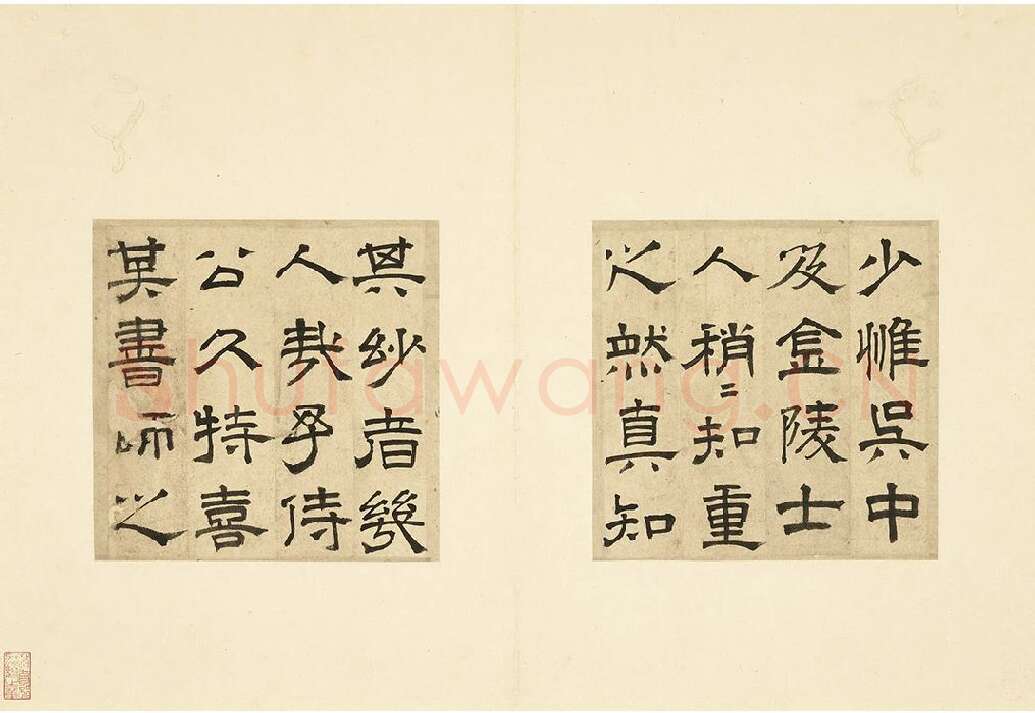 少惟吳中
及金陵士
人稍〻知重
之然真知
其妙者幾
人哉予侍
公久特喜
其書師之
shufawang.CN